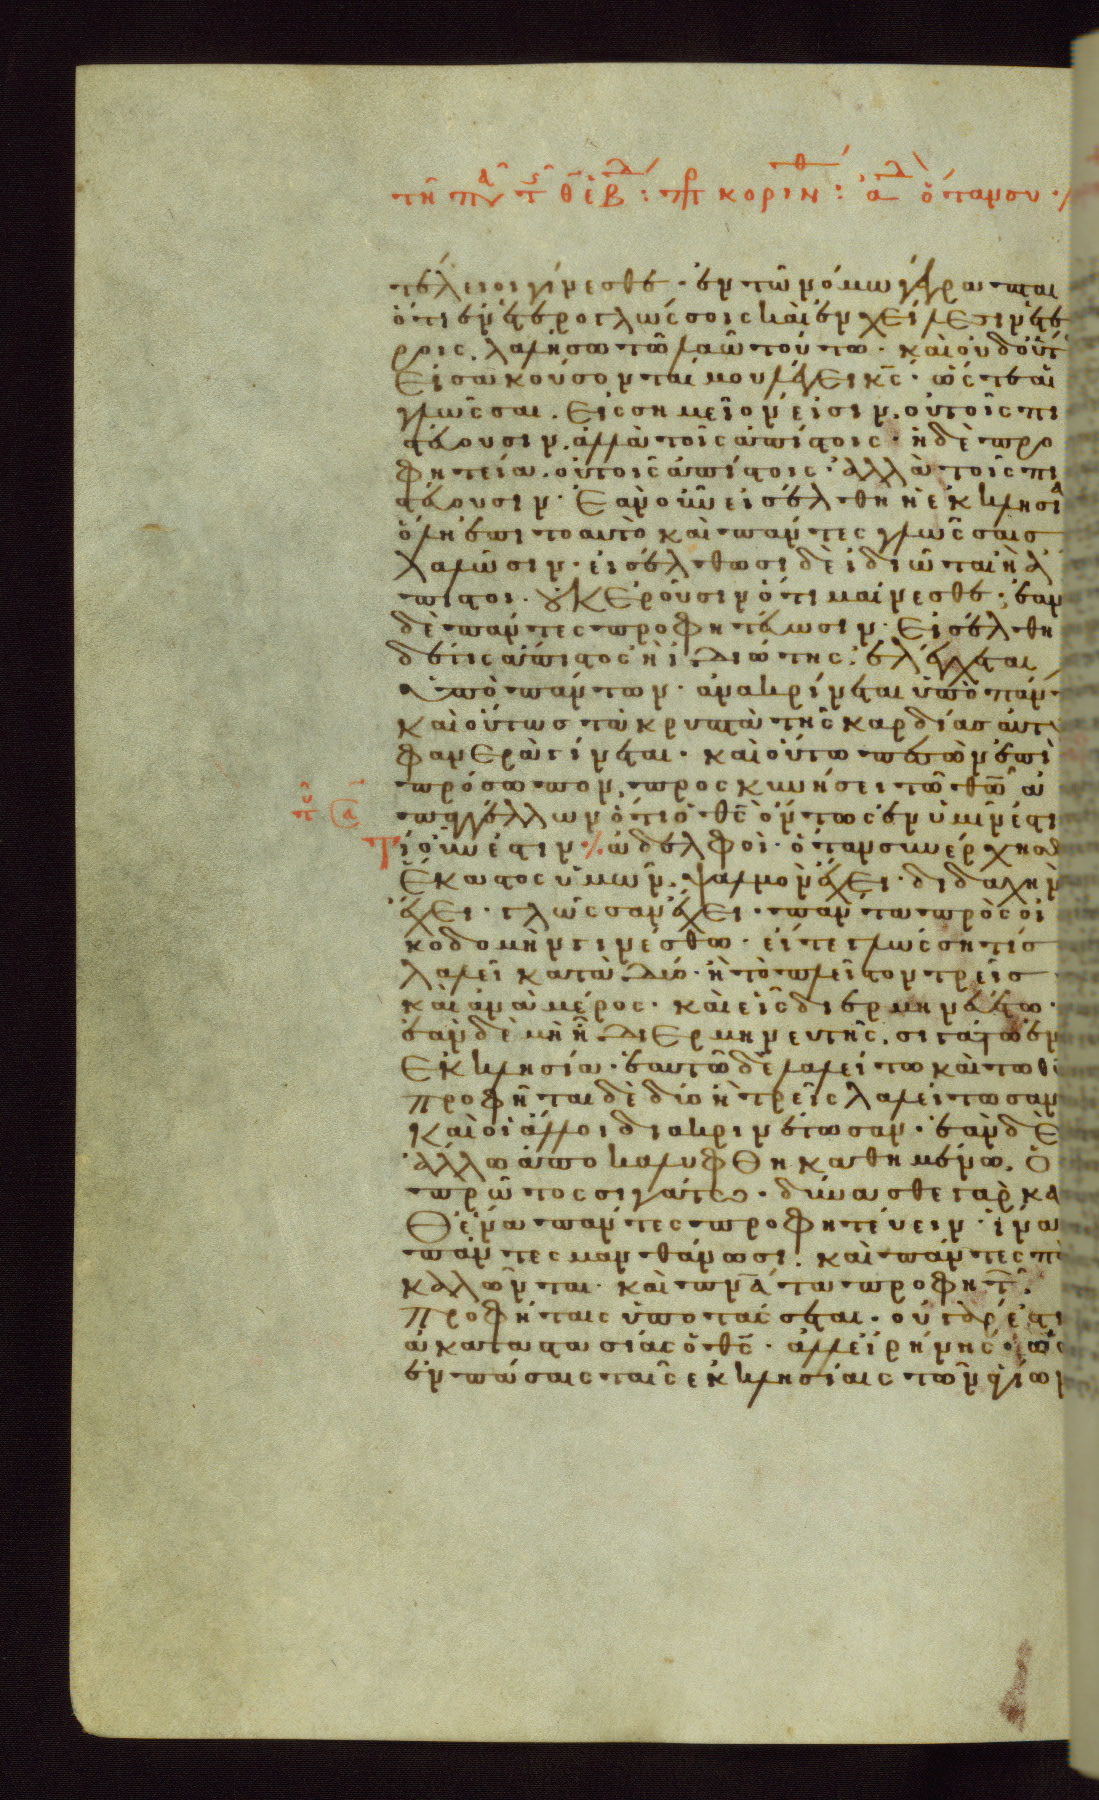 τῆ
κοριν: ὅταν συ
τέλειοι γίνεσθε· ἐν τῶ νόμω γέγραπται
ὅτι ἐν ἑτερογλώσσοις καὶ ἐν χείλεσιν ἑτέ
ροις, λαλήσω τῶ λαῶ τούτω· καὶ οὐδ οὕτ
εἰσακούσονταί μου λέγει κς· ὥστε αἱ
γλῶσσαι. εἰς σημεῖον εἰσιν. οὐ τοῖς πι
στεύουσιν. ἀλλὰ τοῖς ἀπίστοις· ἡ δὲ προ
φητεία. οὐ τοῖς ἀπίστοις· ἀλλὰ τοῖς πι
στεύουσιν· ἐὰν οὖν εἰσέλθη ἡ ἐκκλησία
ὅλη ἐπι το αυτὸ καὶ πάντες γλώσσαις
λαλῶσιν· εἰσέλθωσι δὲ ἰδιῶται ἢ ἄ
πιστοι. οὐκ ἐροῦσιν ὅτι μαίνεσθε· ἐὰν
δὲ πάντες προφητεύωσιν· εἰσέλθη
δέ τις ἄπιστος ἢ ἰδιώτης. ἐλέγχεται
ὑπὸ πάντων· ἀνακρίνεται ὑπὸ πάντ
καὶ οὕτως τὰ κρυπτὰ τῆς καρδίας αὐτ
φανερὰ γίνεται· καὶ οὕτω πεσὼν ἐπὶ
πρόσωπον, προσκυνήσει τῶ θῶ ἀ
παγγέλλων ὅτι ὁ θς ὄντως ἐν ὑμῖν ἐστι
Τί οὖν ἐστιν ἀδελφοί· ὅταν συνέρχησθ
ἕκαστος ὑμῶν, ψαλμὸν ἔχει· διδαχὴν
ἔχει· γλῶσσαν ἔχει· πάντα πρὸς οἰ
κοδομὴν γινέσθω· εἴτε γλώσση τις
λαλεῖ κατὰ δύο· ἢ τὸ πλεῖστον τρεῖς
καὶ ἀνὰ μέρος· καὶ εἷς διερμηνευέτω·
ἐὰν δὲ μὴ ἦ διερμηνευτής, σιγάτω ἐν
ἐκκλησία· ἑαυτῶ δὲ λαλείτω καὶ τῶ θ
προφῆται δὲ δύο ἢ τρεῖς λαλείτωσαν
καὶ οἱ ἄλλοι διακρινέτωσαν· ἐὰν δὲ
ἄλλω ἀποκαλυφθῆ καθημένω. ὁ
πρῶτος σιγάτω· δύνασθε γὰρ κα
θ ἕνα πάντες προφητεύειν· ἵνα
πάντες μανθάνωσι. καὶ πάντες π
καλῶνται· καὶ πνα τα προφητ
προφήταις ὑποτάσσεται· οὐ γάρ ἐστι
ἀκαταστασίας ὁ θς· ἀλλ εἰρήνης· ὡς
ἐν πάσαις ταῖς ἐκκλησίαις τῶν ἁγίων